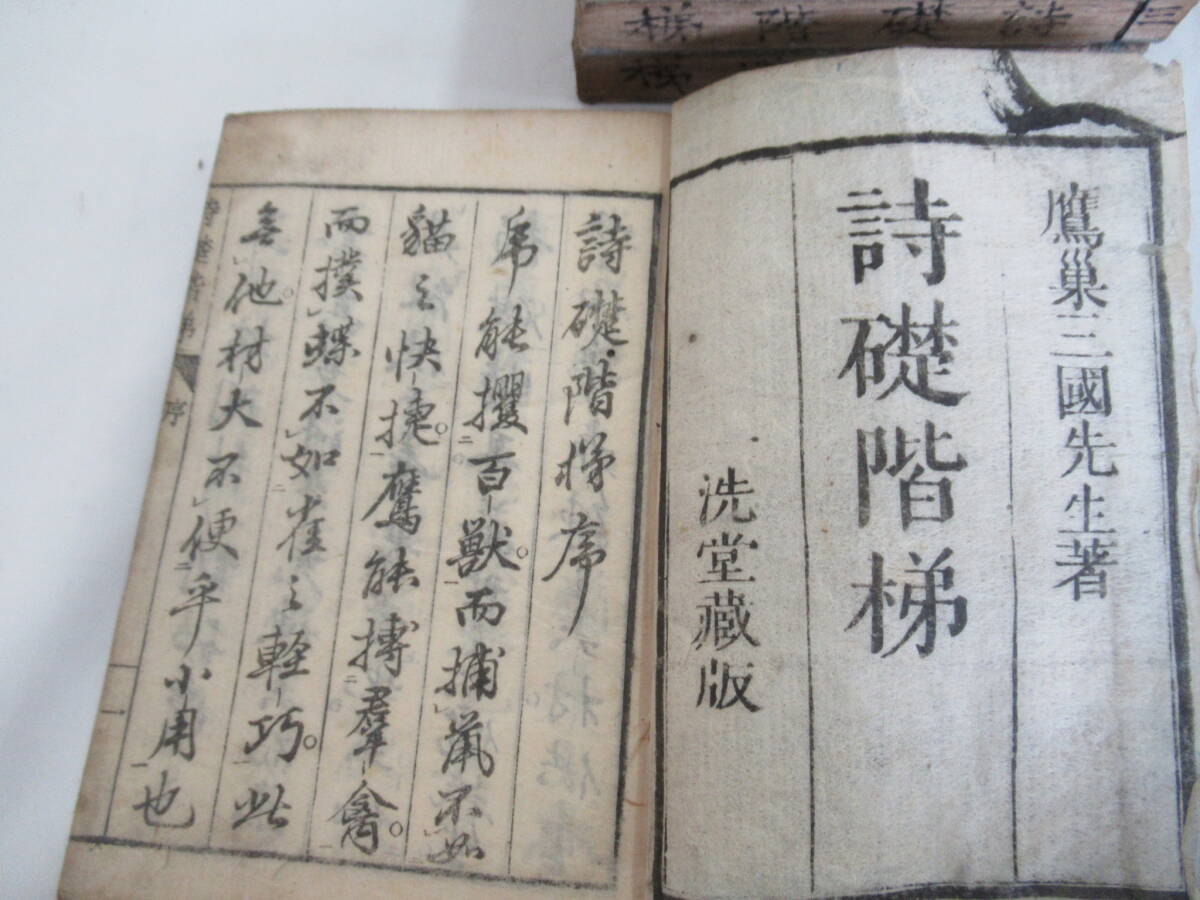 梯階礎詩 三
梯
鷹巢三國先生著
詩礎階梯
洗堂藏版
詩礎階梯序
虎能攫百獸而捕鼠不如
貓之快捷鷹能搏羣禽
而撲蝶不如雀之輕巧此
無他材大不便乎小用也
序
一